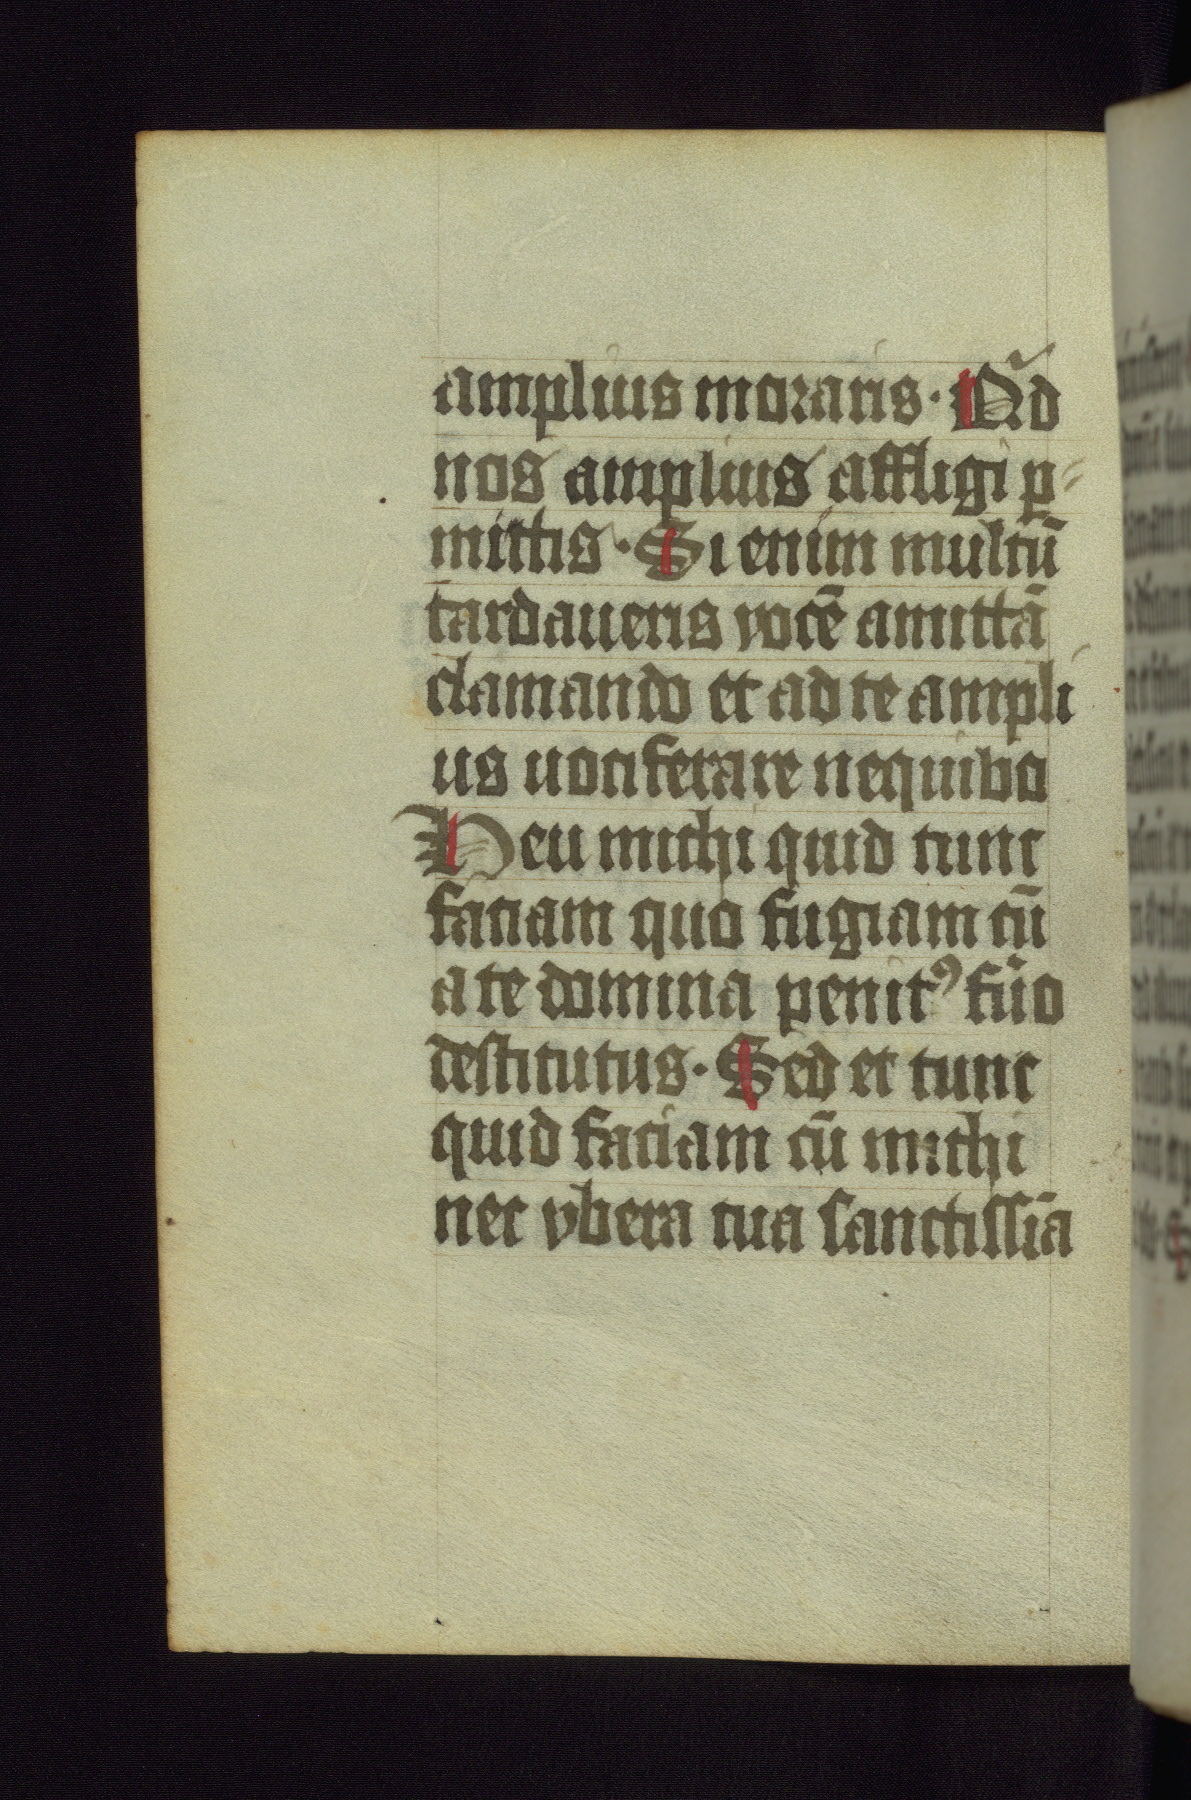 amplius moraris · Q̃d
nos amplius affligi p⸗
mittis · Si enim multū
tardaueris vocē amittā
clamando et ad te ampli
us uociferare nequibo
Heu michi quid tunc
faciam quo fugiam cū
a te domina penitꝰ fūo
destitutus · Sed et tunc
quid faciam cū michi
nec vbera tua sanctissīa